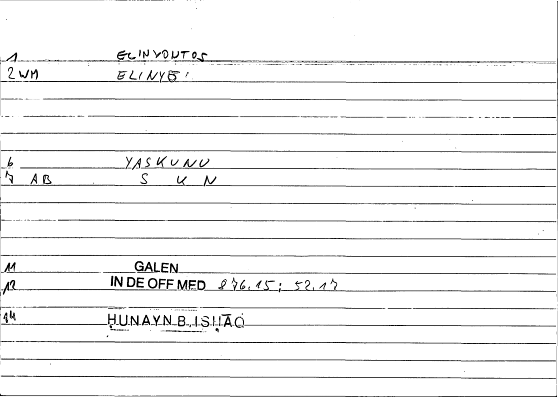 1 ELINYONTOS
2 WM ELINYE
6 YASKUNU
7 AB S K N
11 GALEN
12 IN DE OFF MED 876.15; 52.17
14 HUNAYN B. ISHAQ